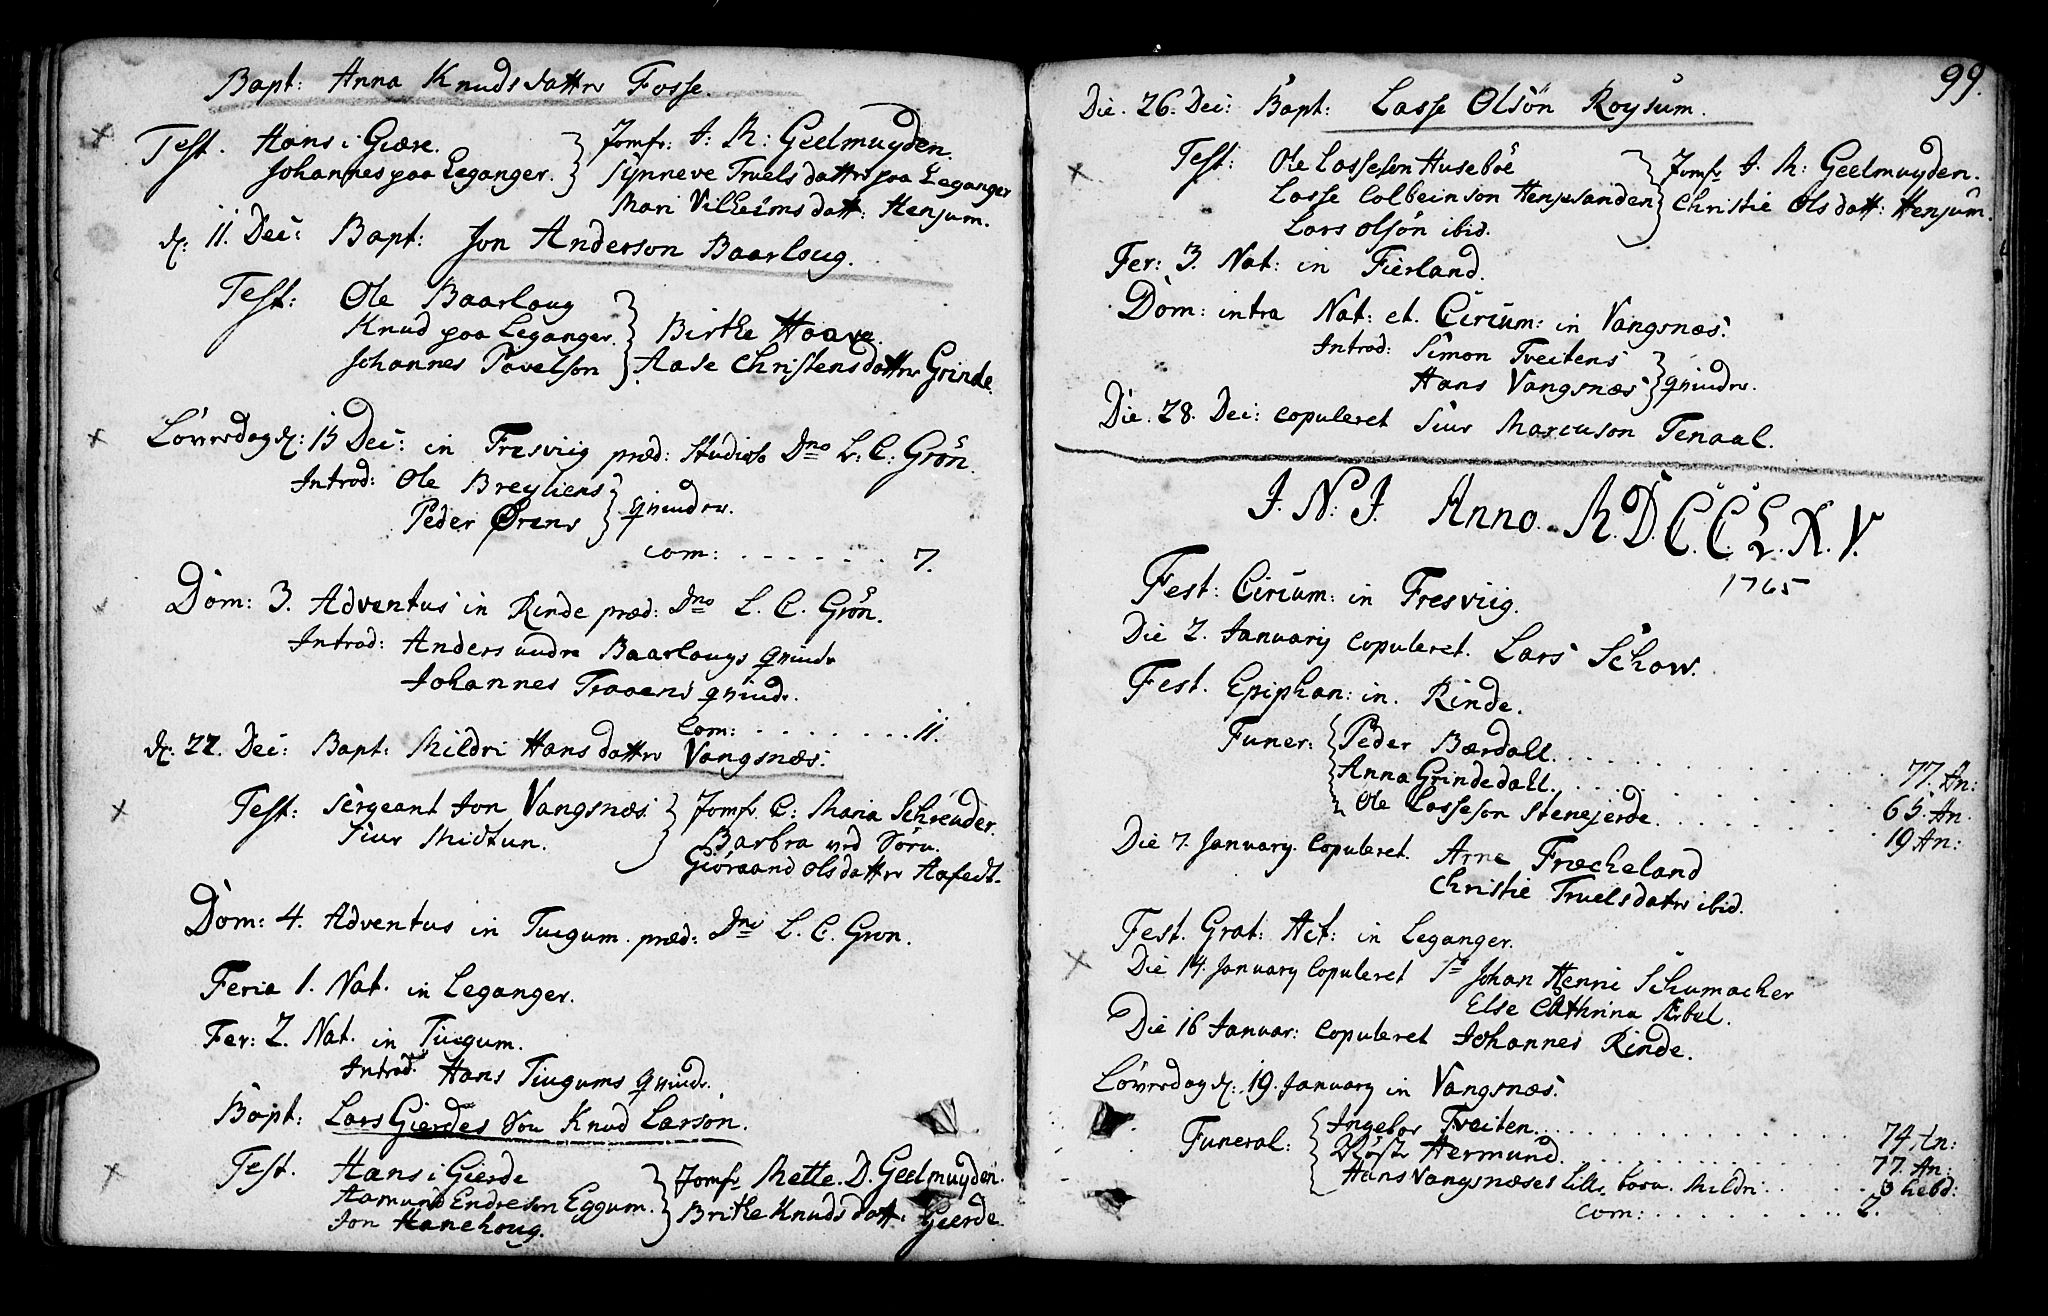 Bapt: Anna Knudsdatter Fosse.
Test. Hans i Giære. Jomfr: A. M: Geelmuyden.
Johannes paa Leganger. Synneve Truels datter paa Leganger
Mari Vilheimsdatt: Henjum.
d: 11. Dec: Bapt: Jon Anderson Baarloug.
Test: Ole Baarloug
Knud paa Leganger. Birthe Haave.
Johannes Povelson Aase Christensdatter Grinde.
Löverdag d: 15 Dec: in Fresviig præd: Studioso Dno L: C: Grön.
Introd: Ole Breyliens
Peder Ørens qvinder.
com: . . . . . . . 7.
Dom: 3. Adventus in Rinde præd: Dno L. C. Grön.
Introd: Anders Baarlougs qvinde
Johannes Traaens qvinde.
Com: . . . . . . . . 11.
d: 22. Dec: Bapt: Mildri Hansdatter Vangsnæs.
Test: Sergeant Jon Vangsnæs. Jomfr. C: Maria Schreuder.
Siur Midtun. Barbra
Giöraand Olsdatter Hafedt.
Dom: 4. Adventus in Tuegum. præd: Dno L. C. Gron.
Feria 1. Nat. in Leganger.
Fer: 2. Nat. in Tuegum.
Introd: Hans Tiugums qvinde.
Bapt: Lars Gierdes Son Knud Larson.
Test. Hans i Gierde Jomfr Mette. D. Geelmuyden.
Aamund Endreson Eggum. Brithe Knudsdatt: Gierde.
Jon Hanehoug.
99.
Die. 26. Dec: Bapt: Lasse Olsön Roysum.
Test: Ole Lasseson Huseböe Jomfr A. M: Geelmuyden.
Lasse Colbeinson Henjesanden Christie Olsdatt: Henjum.
Lars Olsön ibid.
Fer: 3. Nat: in Fierland.
Dom: intra Nat: et. Circum: in Vangsnæs.
Introd: Simon Tveitens
Hans Vangsnæs qvinder.
Die. 28. Dec: copuleret Siur Marcuson Tenaal.
J. N. J. Anno. M. D. C. C. L. X. V.
1765
Fest: Circum: in Fresviig.
Die 2. January copuleret. Lars Schow.
Fest. Epiphan: in. Rinde.
Funer: Peder Bærdall. . . . . . . . . 77. An:
Anna Grindedall. . . . . . . . . 65. An.
Ole Lasseson Stenejerde. . . . . . . 19 An:
Die 7. January. Copuleret. Arne Fræcheland
Christie Truelsdatter ibid.
Fest. Grat: Act: in Leganger.
Die 14. January Copuleret Sr Johan Henric Schumacher
Else Cathrina
Die 16 Januar: Copuleret Johannes Rinde.
Löverdag d: 19. January in Vangsnæs.
Funeral: Ingebor Tveiten. . . . . . . . . 74. An:
Hermund. . . . . . . . . 77. An:
Hans Vangsnæses lille barn. Mildri . . . . . hebd:
Com: . . . . . . . . . 2.